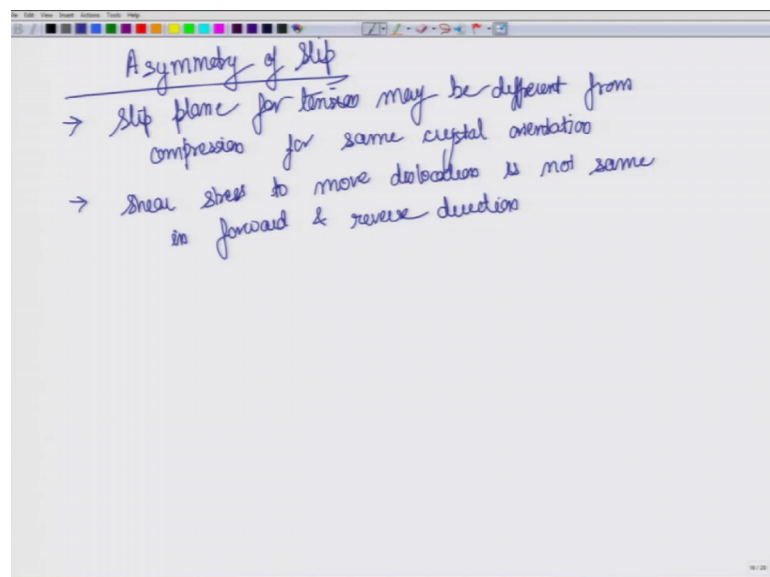 File Edit View Insert Actions Tools Help
Asymmetry of Slip
→ Slip plane for tension may be different from
compression for same crystal orientation
→ Shear stress to move dislocations is not same
in forward & reverse direction